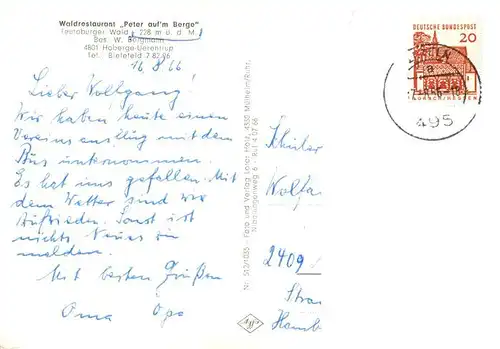 Waldrestaurant „Peter auf'm Berge"
Teutoburger Wald (228 m ü. d. M.)
Bes. W. Bergmann
4801 Hoberge-Uerentrup
Tel.: Bielefeld 7 82 96
16.8.66
Lieber Wolfgang!
Wir haben heute einen
Vereinsausflug mit dem
Bus unternommen.
Es hat uns gefallen. Mit
dem Wetter sind wir
zufrieden. Sonst ist
nichts Neues zu
melden.
Mit besten Grüßen
Oma Opa
Foto und Verlag Lorer Holz, 4330 Mülheim/Ruhr,
Nibelungenweg 6 - Ruf 4 07 66
Agfa
DEUTSCHE BUNDESPOST
20
LORSCH/HESSEN
a
495
Schüler
Wolfg
2409
Stra
Hamb